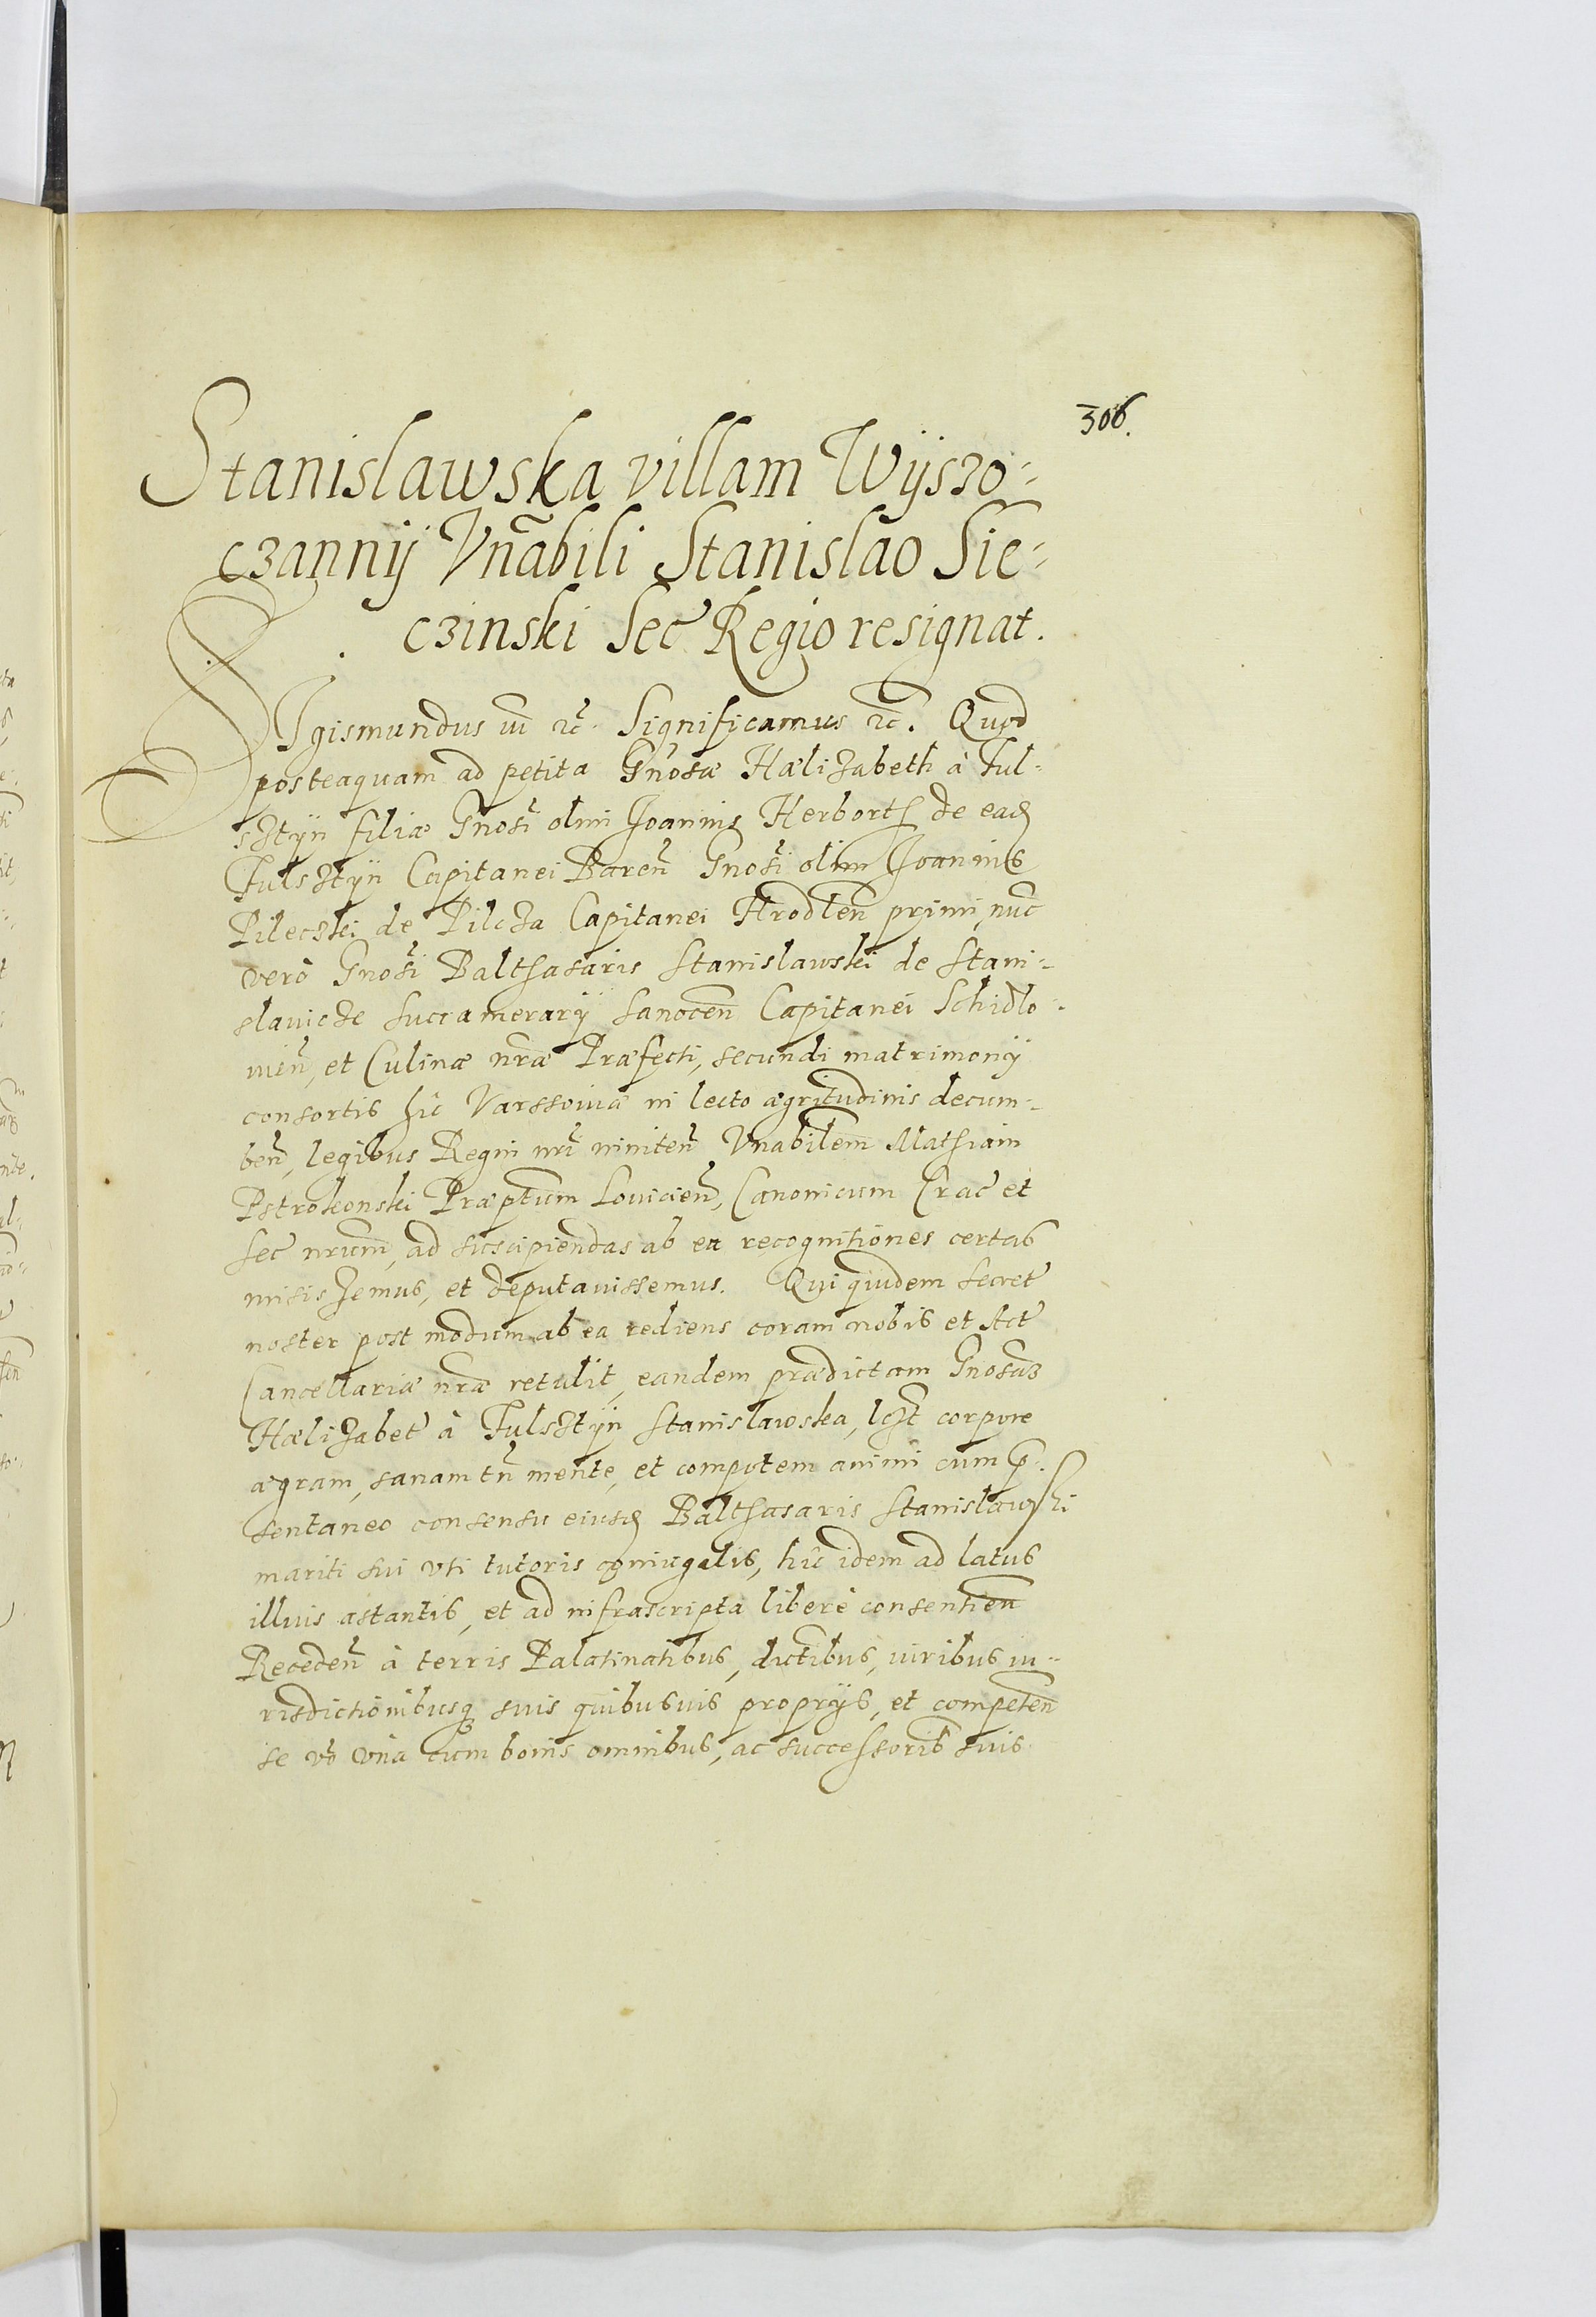 306.
Stanislawska villam Wÿszo-
czannÿ Vñabili Stanislao Sie-
czinski Sec Regio resignat.
SIgismundus iii etc̃. Significamus etc. Quod
posteaquam ad petita Gñosæ Hælizabeth à Ful-
sztÿn filiæ Gnosi olim Joannis Herborth de ead
Fulsztÿn Capitanei Bareñ Gnosi olim Joannis
Pileczki de Pilcza Capitanei Hrodleñ primi, nuc
vero Gnosi Balthasaris Stanislawski de Stani-
slavicze Succamerarÿ Sanoceñ Capitanei Schidlo-
vieñ, et Culinæ nr̃æ Præfecti, secundi matrimonÿ
consortis hic Varssoviæ in lecto ægritudinis decum-
beñ, legibus Regni nr̃i inniteñ Vnabilem Mathiam
Pstrokonski Præptum Lovicieñ, Canonicum Crac et
Sec nrum, ad suscipiendas ab ea recognitiones certas
misiszemus, et deputavissemus. Qui quidem Secret
noster post modum ab ea rediens coram nobis et Act
Cancellariæ nræ retulit, eandem prædictam Gnosam
Hælizabet à Fulsztÿn Stanislawska, lczt corpore
ægram, sanam tñ mente, et compotem animi cum p̃-
sentaneo consensu eiusd Balthasaris Stanislawski
mariti sui vti tutoris coniugalis, hic idem ad latus
illius astantis, et ad infrascripta liberè consentien
Recedeñ à terris Palatinatibus, dictibus, iuribus iu-
risdictionibusq suis quibusuis proprÿs, et competen
se vo vna cum bonis omnibus, ac successorib suis